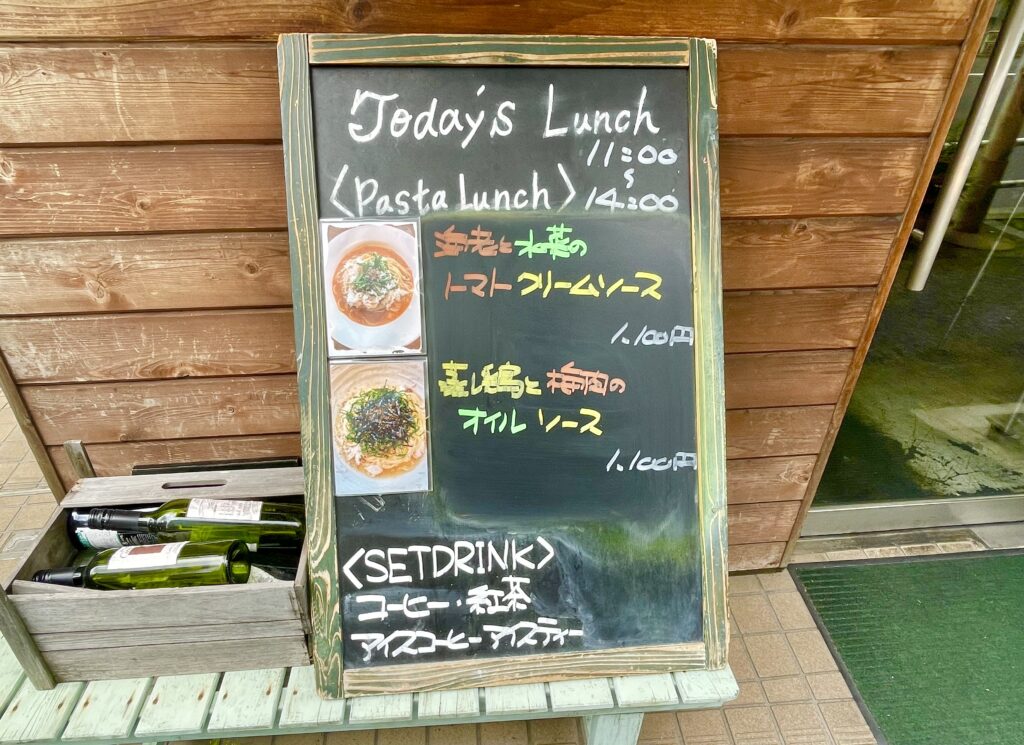 Today's Lunch
11:00
〜
14:00
<Pasta Lunch>
海老と水菜の
トマトクリームソース
1,100円
蒸し鶏と梅肉の
オイルソース
1,100円
<SETDRINK>
コーヒー・紅茶
アイスコーヒー アイスティー